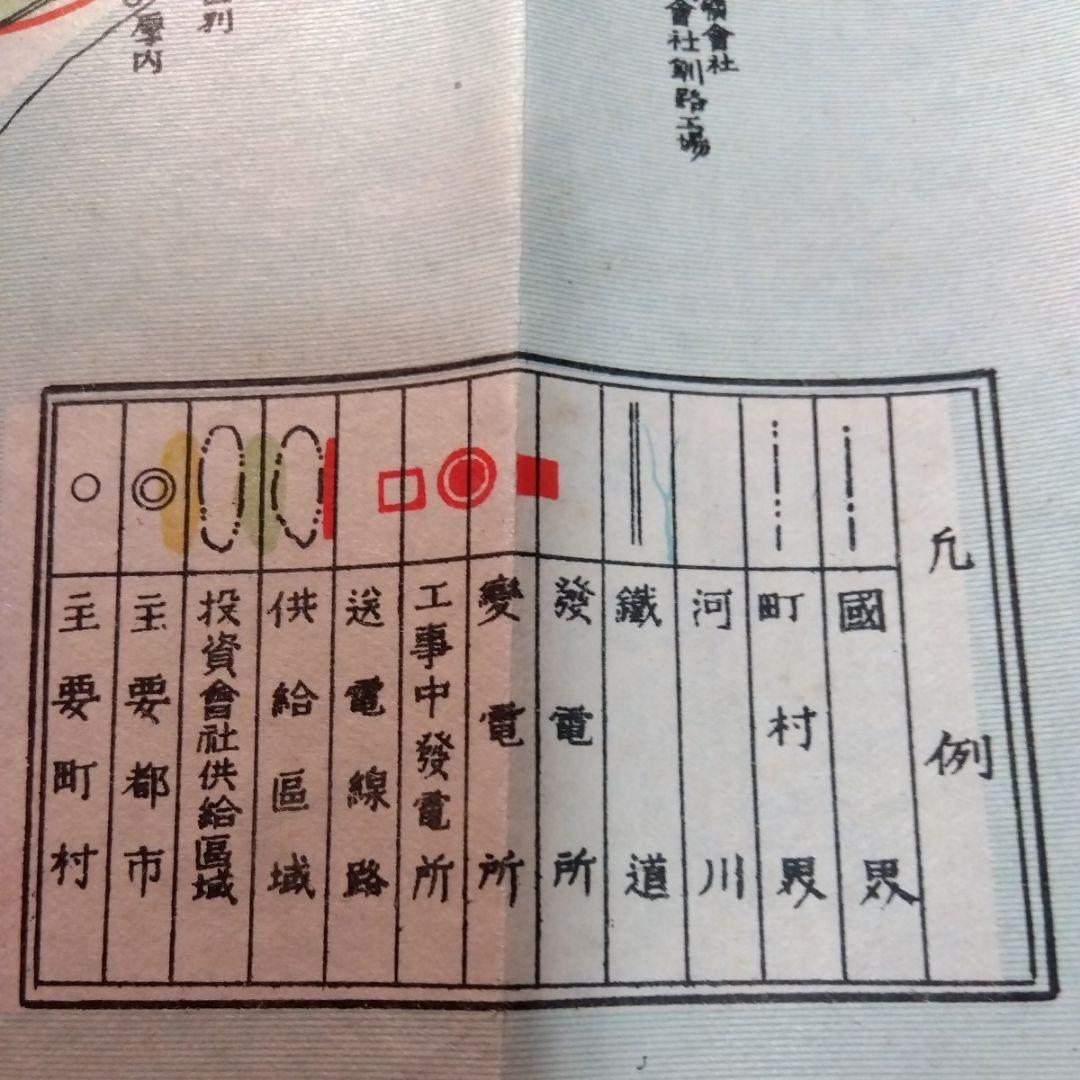 領會社
會社釧路工場
厚内
凡例
國界
町村界
河川
鐵道
發電所
變電所
工事中發電所
送電線路
供給區域
投資會社供給區域
主要都市
主要町村